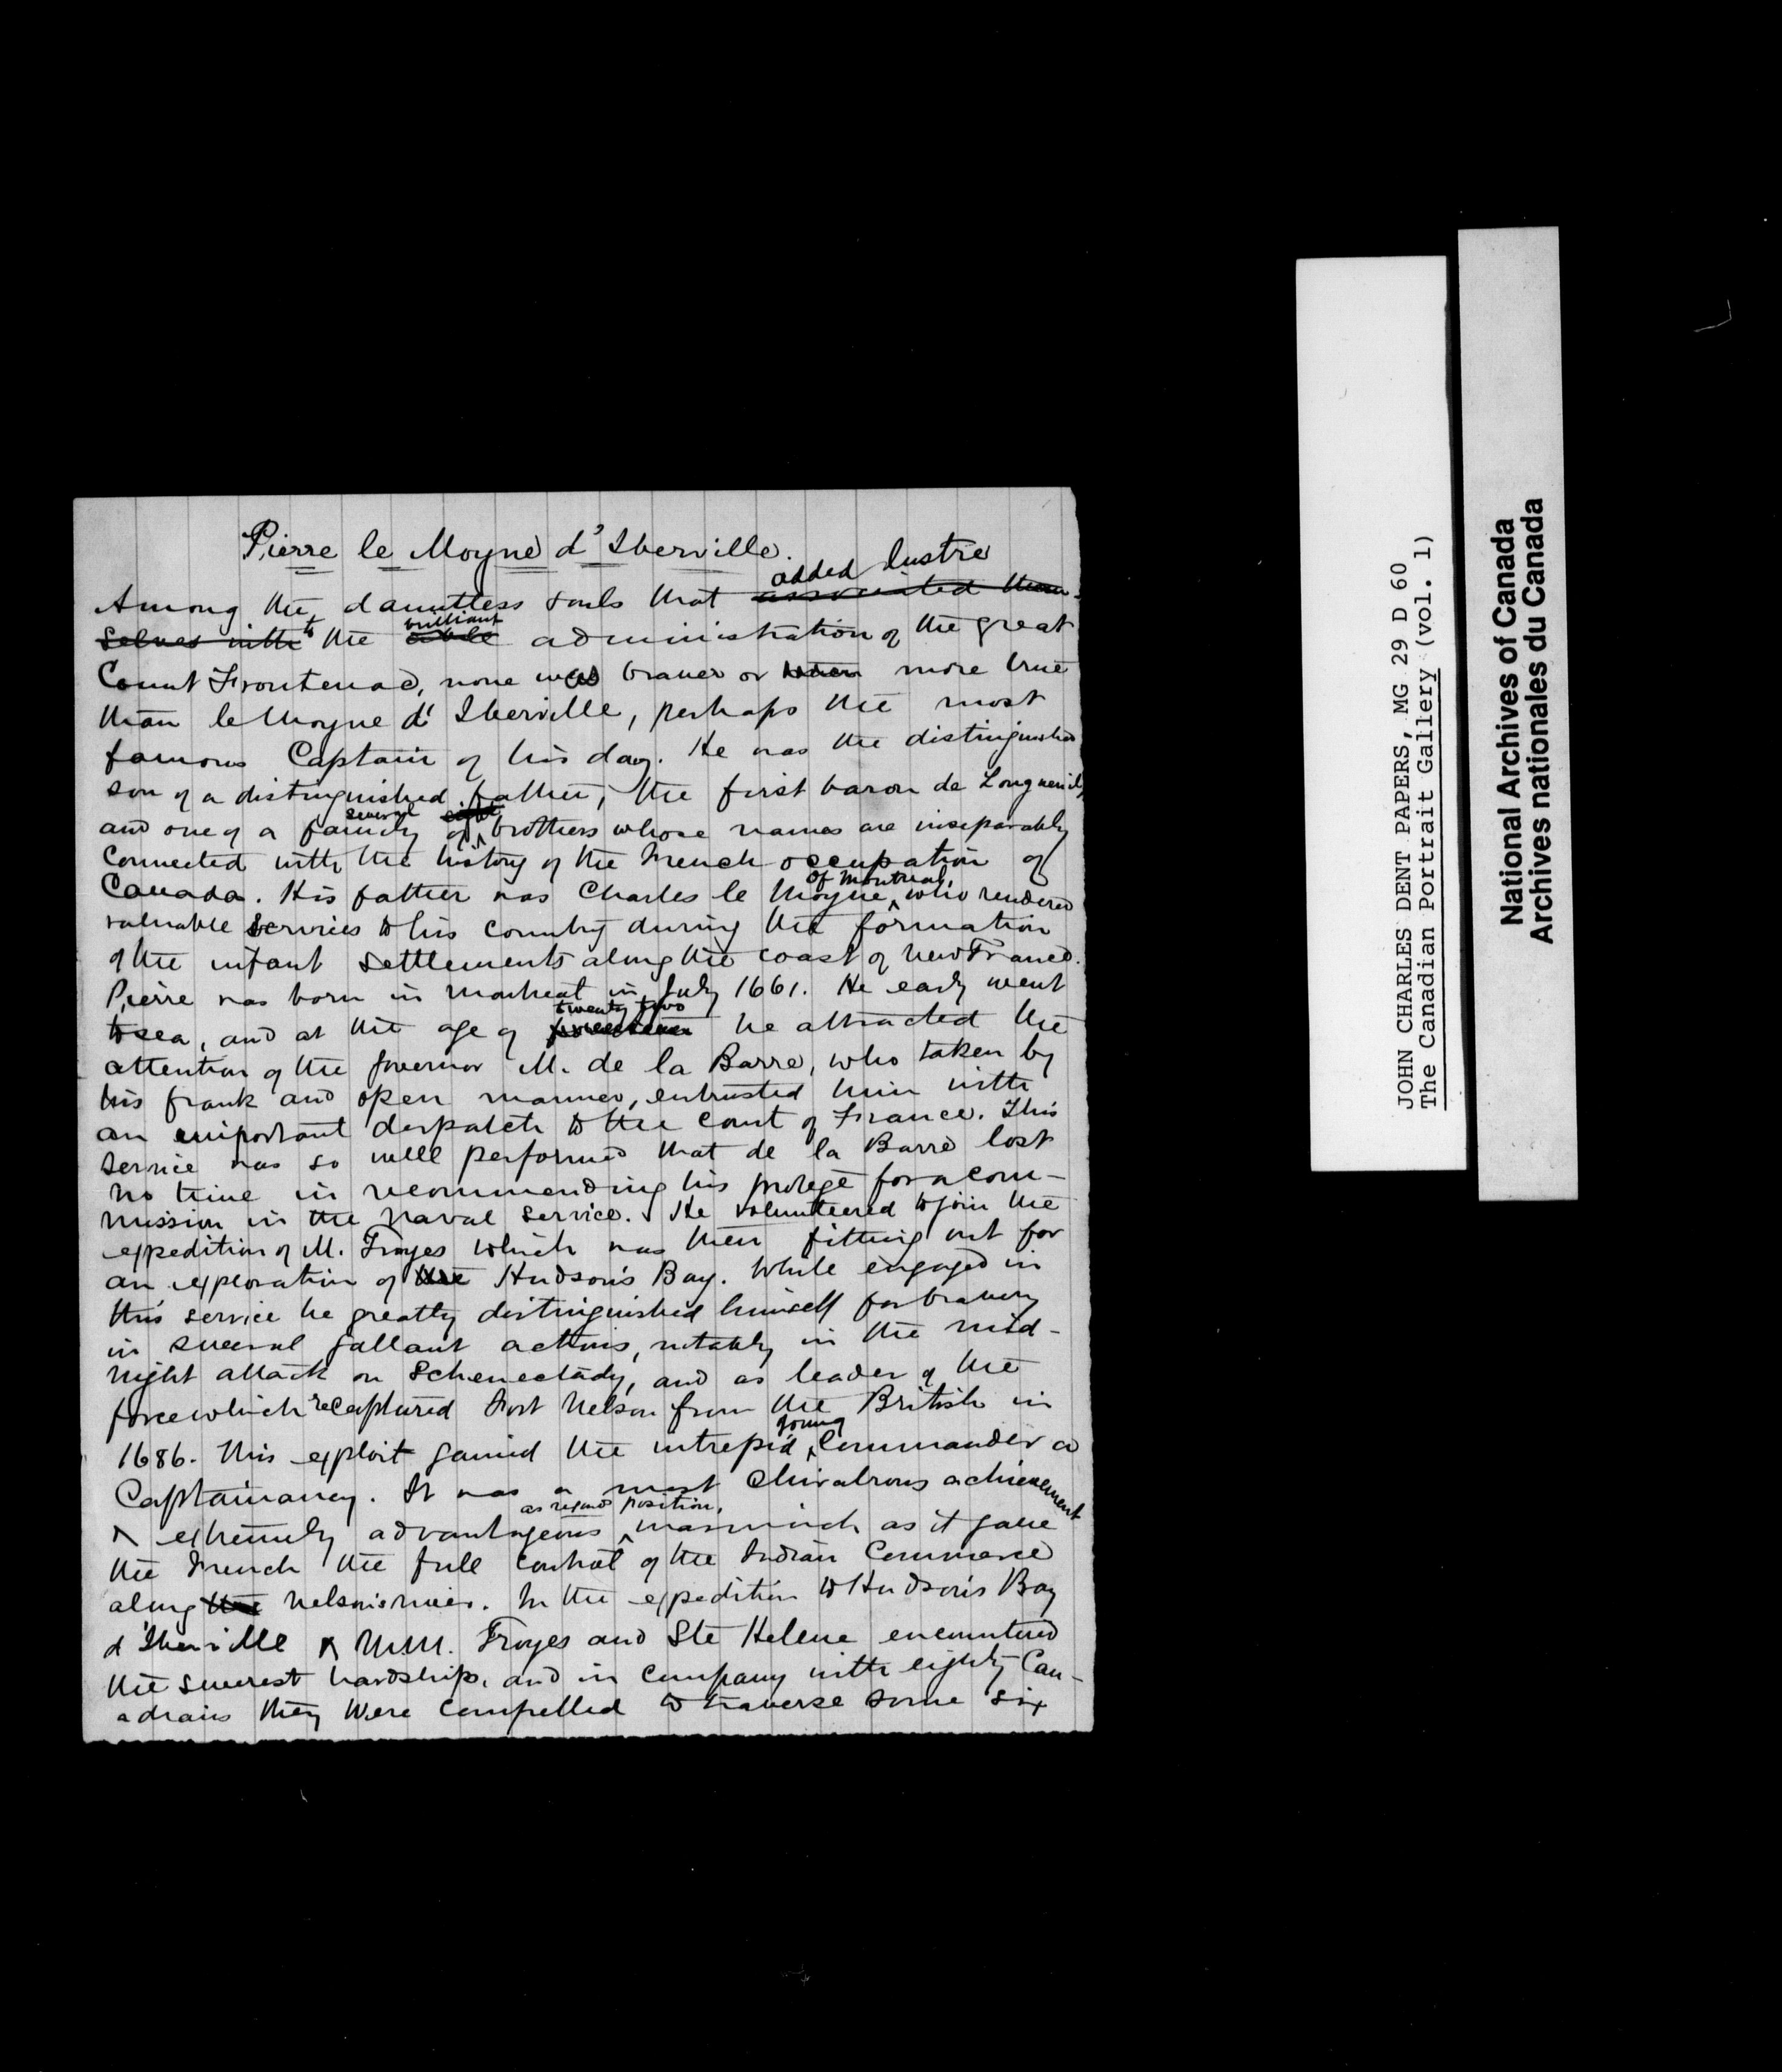 Pierre le Moyne d'Iberville.
added lustre
Among the dauntless souls that associated them-
selves with to the able brilliant administration of the great
Count Frontenac, none was braver or more true
than le Moyne d'Iberville, perhaps the most
famous Captain of his day. He was the distinguished
son of a distinguished father, the first baron de Longueuil,
and one of a family of eight several brothers whose names are inseparably
connected with the history of the French occupation of
Canada. His father was Charles le Moyne of Montreal, who rendered
valuable services to his country during the formation
of the infant settlements along the coast of New France.
Pierre was born in Montreal in July 1661. He early went
to sea, and at the age of twenty two he attracted the
attention of the governor M. de la Barre, who taken by
his frank and open manner, entrusted him with
an important despatch to the Court of France. This
service was so well performed that de la Barre lost
no time in recommending his protegé for a com-
mission in the naval service. He volunteered to join the
expedition of M. Troyes which was then fitting out for
an exploration of the Hudson's Bay. While engaged in
this service he greatly distinguished himself for bravery
in several gallant actions, notably in the mid-
night attack on Schenectady, and as leader of the
force which recaptured Fort Nelson from the British in
1686. This exploit gained the intrepid young Commander a
Captaincy. It was a most chivalrous achievement
& extremely advantageous as regards position, inasmuch as it gave
the French the full control of the Indian Commerce
along the Nelson's river. In the expedition to Hudson's Bay
d'Iberville & M.M. Troyes and Ste Helene encountered
the severest hardship, and in company with eighty Can-
adians they were compelled to traverse some six
JOHN CHARLES DENT PAPERS, MG 29 D 60
The Canadian Portrait Gallery (vol. 1)
National Archives of Canada
Archives nationales du Canada